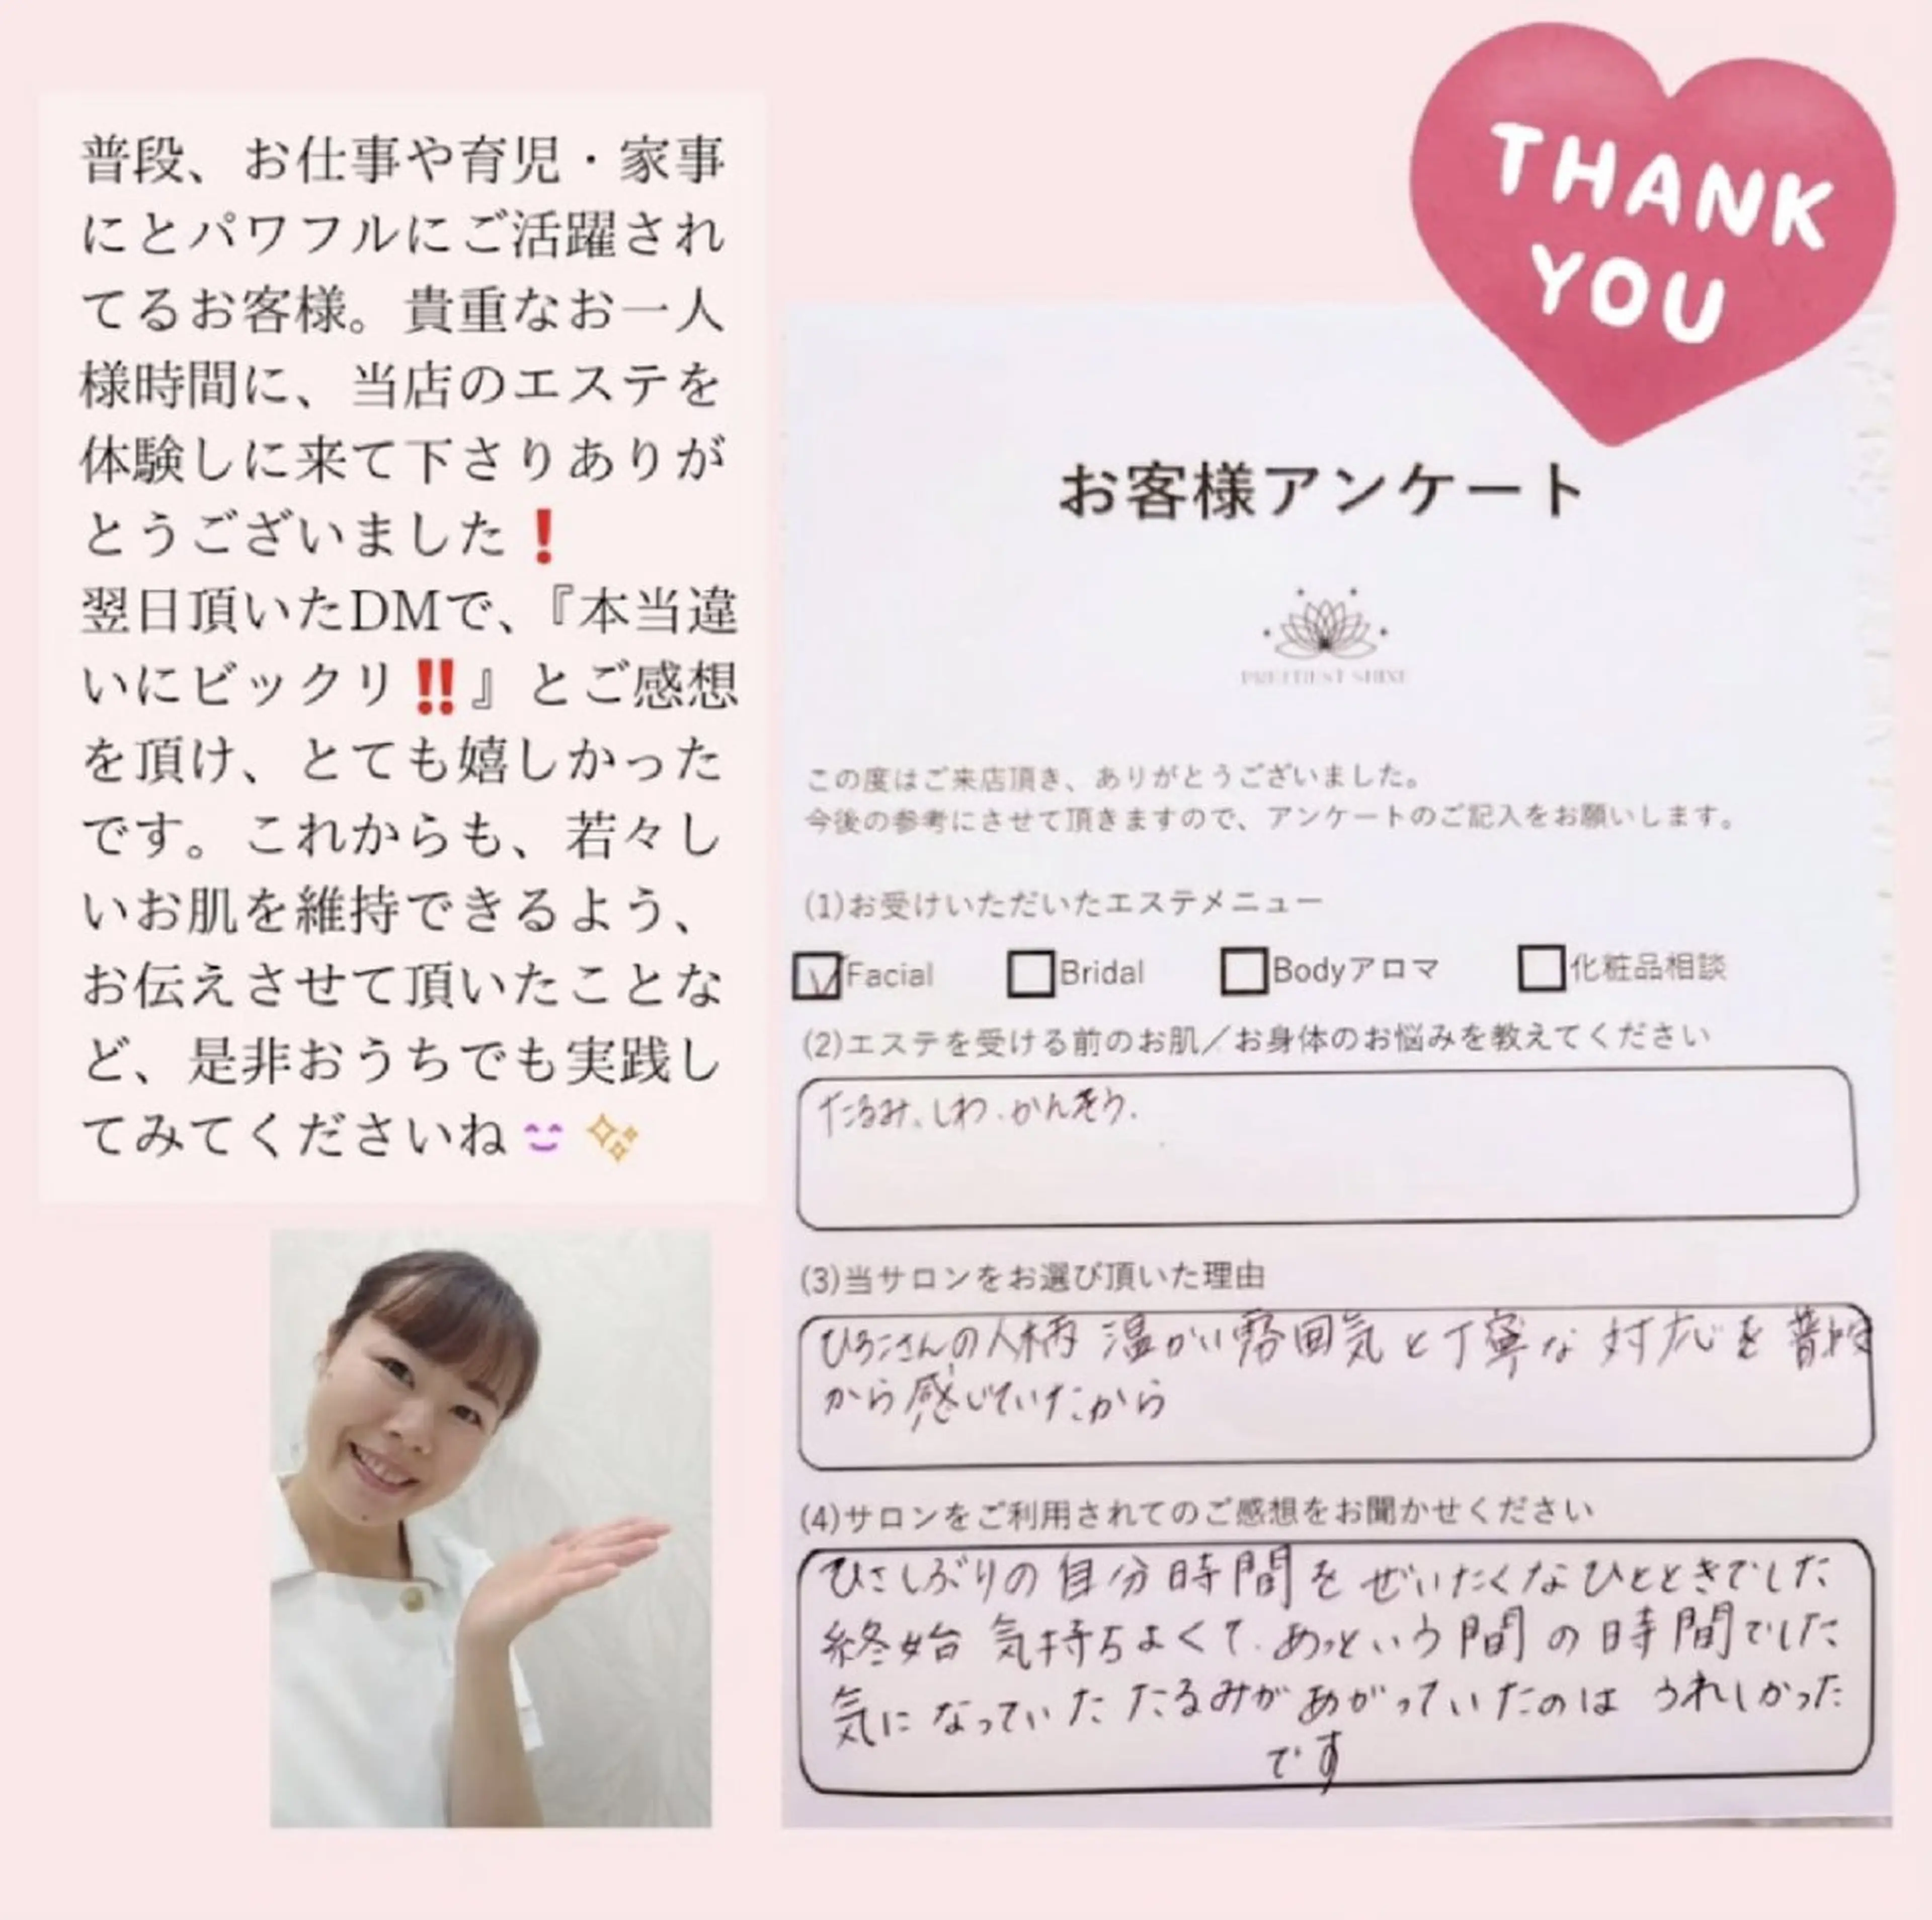 普段、お仕事や育児・家事
にとパワフルにご活躍され
てるお客様。貴重なお一人
様時間に、当店のエステを
体験しに来て下さりありが
とうございました❗
翌日頂いたDMで、『本当違
いにビックリ‼️』とご感想
を頂け、とても嬉しかった
です。これからも、若々し
いお肌を維持できるよう、
お伝えさせて頂いたことな
ど、是非おうちでも実践し
てみてくださいね
THANK
YOU
お客様アンケート
PRETTIEST SHINE
この度はご来店頂き、ありがとうございました。
今後の参考にさせて頂きますので、アンケートのご記入をお願いします。
(1)お受けいただいたエステメニュー
Facial Bridal Bodyアロマ 化粧品相談
(2)エステを受ける前のお肌／お身体のお悩みを教えてください
たるみ、しわ、かんそう.
(3)当サロンをお選び頂いた理由
ひろこさんの人柄 温かい雰囲気と丁寧な対応を普段
から感じていたから
(4)サロンをご利用されてのご感想をお聞かせください
ひさしぶりの自分時間を ぜいたくなひとときでした
終始 気持ちよくて、あっという間の時間でした
気になっていた たるみがあがっていたのは うれしかった
です